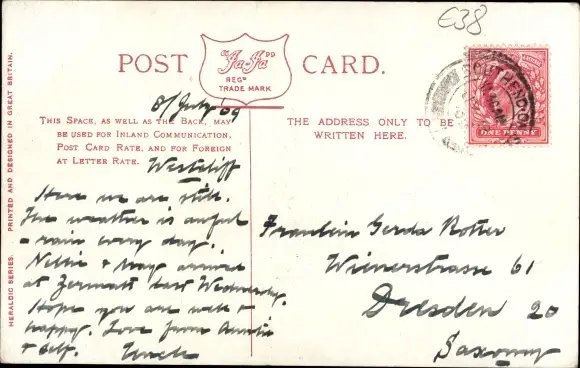 €38
POST CARD.
"Ja-Ja"
REGD
TRADE MARK
8/July '09
THIS SPACE, AS WELL AS THE BACK, MAY
BE USED FOR INLAND COMMUNICATION,
POST CARD RATE, AND FOR FOREIGN
AT LETTER RATE.
Westcliff
Here we are still.
The weather is awful
- rain every day.
Nellie & May arrived
at Zermatt last Wednesday.
Hope you are well &
happy. Love from Auntie
& self. Uncle
THE ADDRESS ONLY TO BE
WRITTEN HERE.
ONE PENNY
Fraulein Gerda Rotter
Wienerstrasse 61
Dresden 20
Saxony
HERALDIC SERIES. PRINTED AND DESIGNED IN GREAT BRITAIN.